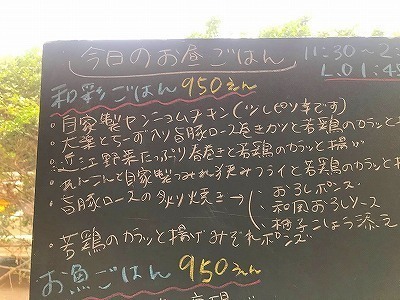 今日のお昼ごはん
11:30～2:
L.O 1:45
和彩ごはん 950えん
・自家製ヤンニョムチキン(少しピリ辛です)
・大葉とチーズ入り旨豚ロース巻きカツと若鶏のカラッと揚
・近江野菜たっぷり春巻きと若鶏のカラッと揚げ
・れんこんと自家製つみれ挟みフライと若鶏のカラッと揚
・旨豚ロースの炙り焼き→
・おろしポンズ
・和風おろしソース
・柚子こしょう添え
・若鶏のカラッと揚げみぞれポンズ
お魚ごはん 950えん